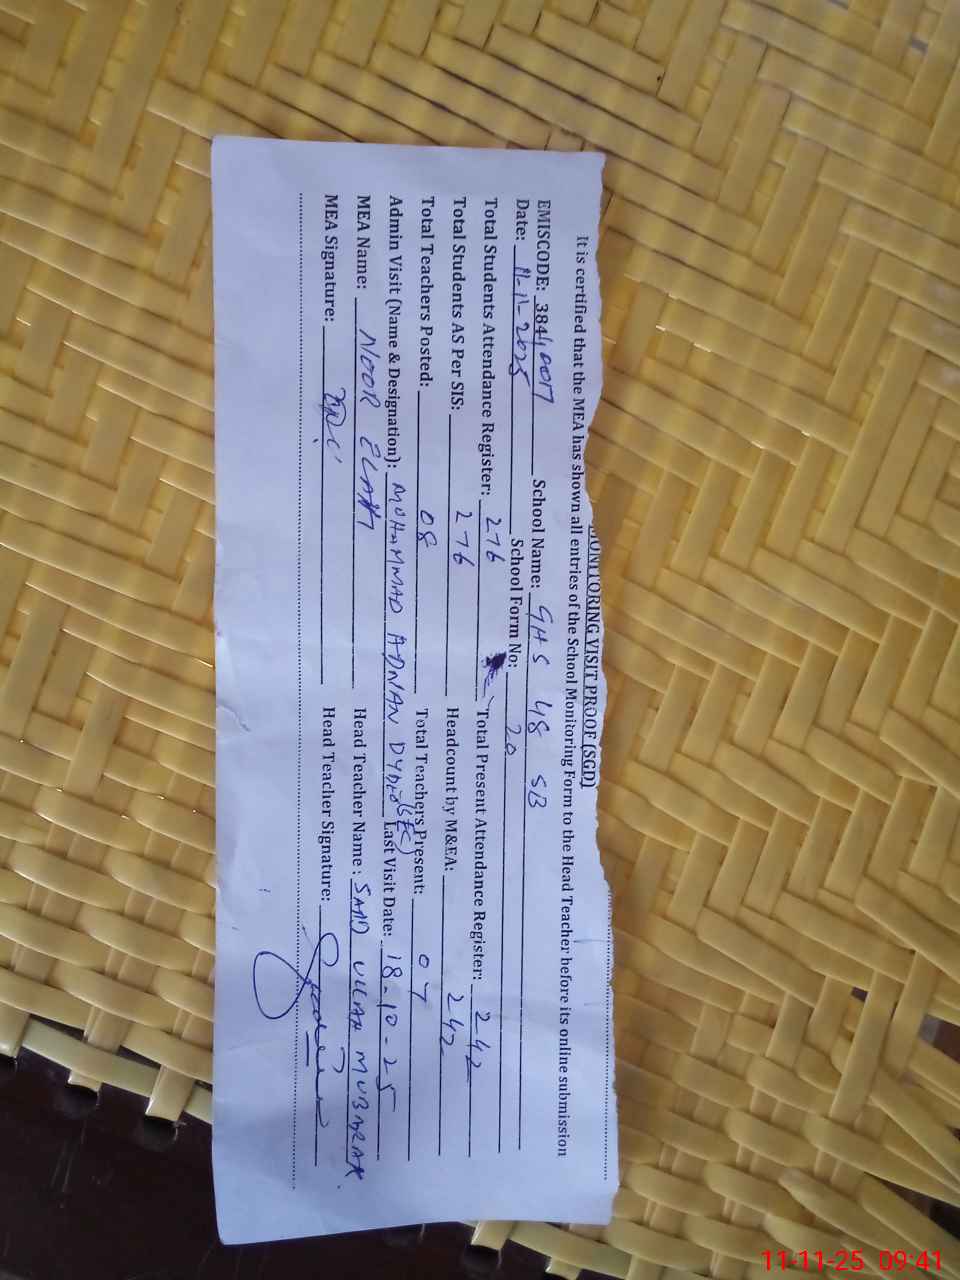 MONITORING VISIT PROOF (SGD)
It is certified that the MEA has shown all entries of the School Monitoring Form to the Head Teacher before its online submission
EMISCODE: 38441 0017 School Name: GHS 48 SB
Date: 11-11-2025 School Form No: 20
Total Students Attendance Register: 276 Total Present Attendance Register: 242
Total Students AS Per SIS: 276 Headcount by M&EA: 242
Total Teachers Posted: 08 Total Teachers Present: 07
Admin Visit (Name & Designation): MUHAMMAD ADNAN Last Visit Date: 18-10-25
MEA Name: NOOR ELAHI Head Teacher Name: SAAD ULLAH MUBARAK
MEA Signature: Head Teacher Signature:
11-11-25 09:41